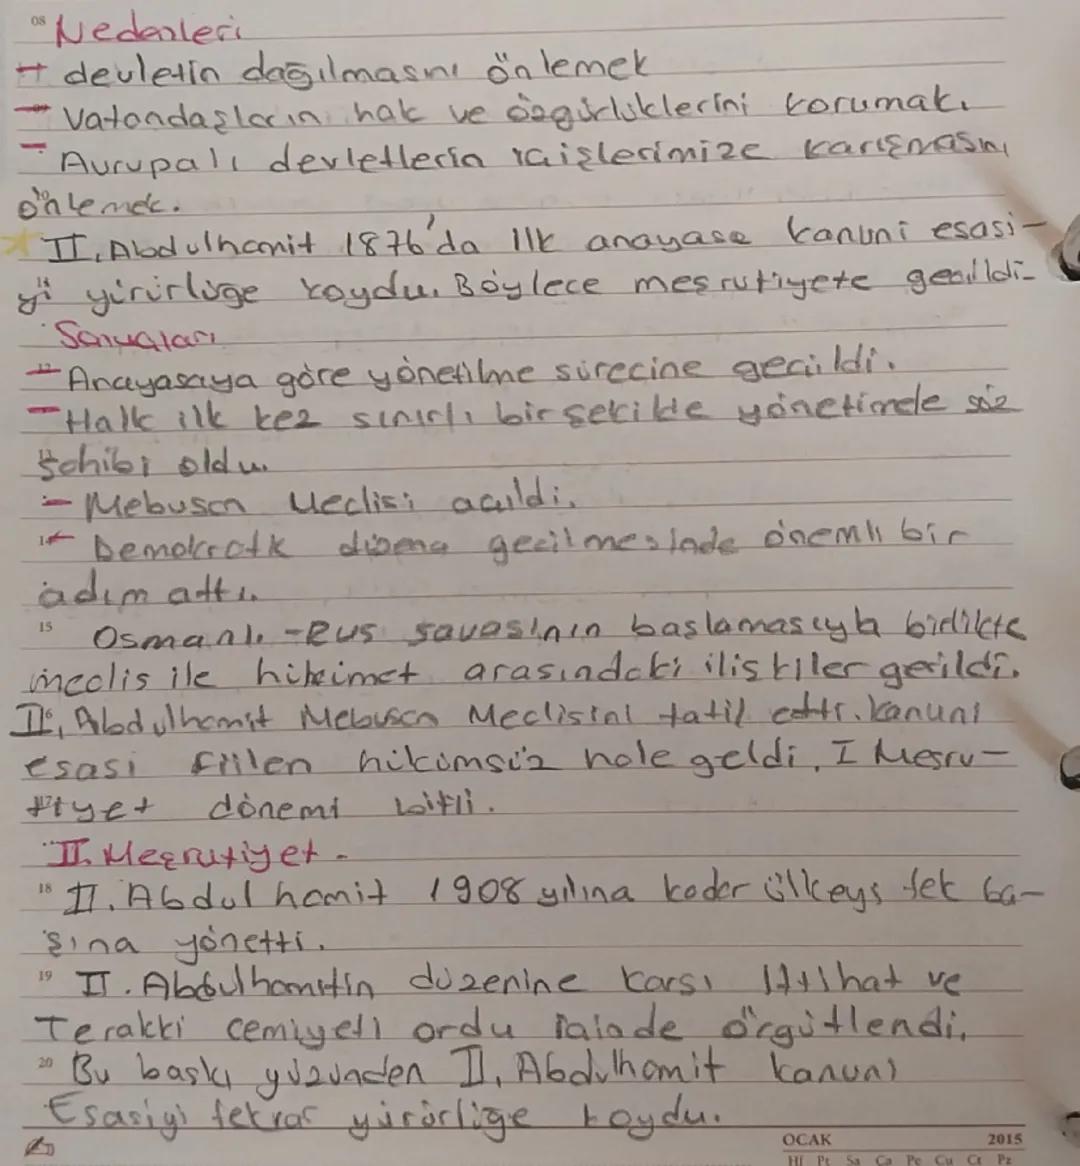 08 Nedenleri
- devletin dağılmasını önlemek
- Vatandaşların hak ve özgürlüklerini korumak.
- Avrupalı devletlerin içişlerimize karışmasını
önlemek.
II. Abdulhamit 1876'da ilk anayasa kanuni esasi-
yi yürürlüğe koydu. Böylece meşrutiyete geçildi-
Sonuçları
- Anayasaya göre yönetilme sürecine geçildi.
- Halk ilk kez sınırlı bir şekilde yönetimde söz
sahibi oldu.
- Mebusan Meclisi açıldı.
- Demokratik düzene geçilmesinde önemli bir
adım attı.
15 Osmanlı-Rus savaşının başlamasıyla birlikte
meclis ile hükümet arasındaki ilişkiler gerildi.
II. Abdulhamit Mebusan Meclisini tatil etti. kanuni
esasi fiilen hükümsüz hale geldi. I Meşru-
tiyet dönemi bitti.
II. Meşrutiyet.
18 II. Abdulhamit 1908 yılına kadar ülkeyi tek ba-
şına yönetti.
19 II. Abdulhamitin düzenine karşı İttihat ve
Terakki cemiyeti ordu içinde örgütlendi.
20 Bu baskı yüzünden II. Abdulhamit kanuni
Esasiyi tekrar yürürlüğe koydu.
OCAK 2015
Hf Pt Sa Ça Pe Cu Ct Pz